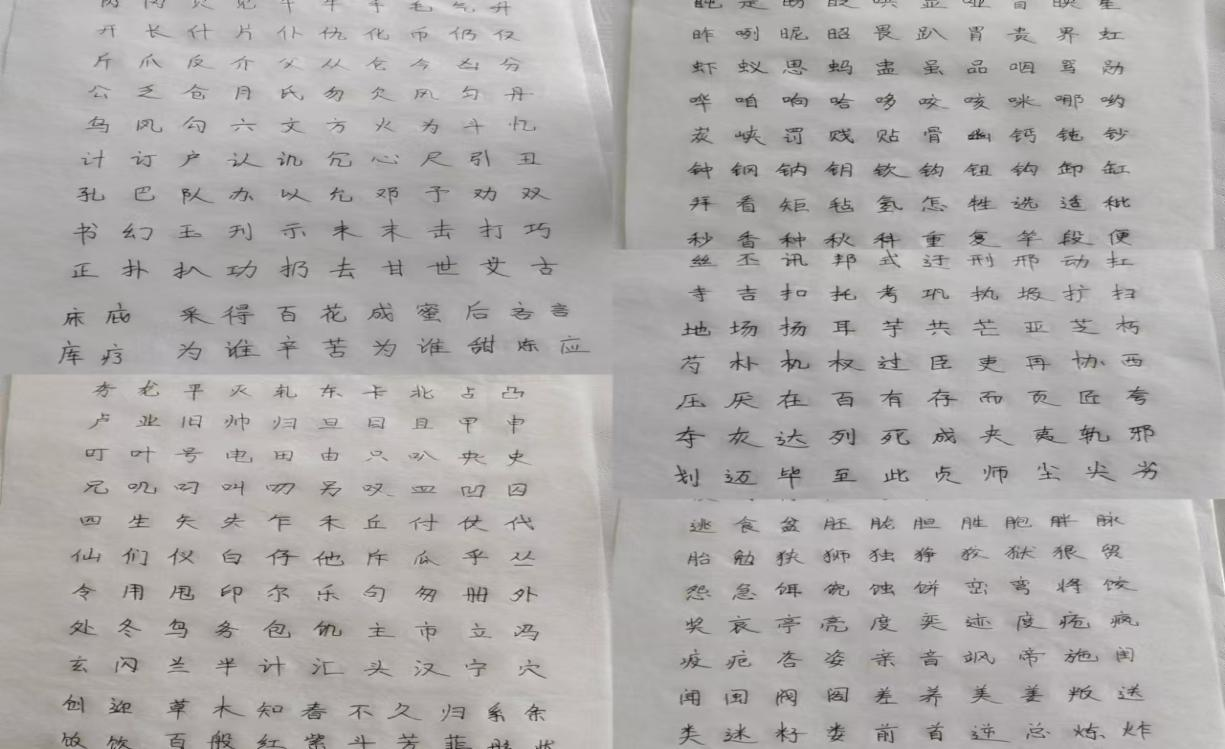 内 见 午 牛 手 毛 气 升
开 长 什 片 仆 仇 化 币 仍 仅
斤 爪 反 介 父 从 仓 今 凶 分
公 乏 仓 月 氏 勿 欠 风 匀 丹
乌 凤 勾 六 文 方 火 为 斗 忆
计 订 户 认 讥 冗 心 尺 引 丑
孔 巴 队 办 以 允 邓 予 劝 双
书 幻 玉 刊 示 未 末 击 打 巧
正 扑 扒 功 扔 去 甘 世 艾 古
床 庇 采 得 百 花 成 蜜 后 言
库 疗 为 谁 辛 苦 为 谁 甜 应
龙 平 灭 轧 东 卡 北 占 凸
卢 业 旧 帅 归 旦 目 且 甲 申
叮 叶 号 电 田 由 只 叭 央 史
兄 叽 叼 叫 叨 另 叹 皿 凹 囚
四 生 矢 失 乍 禾 丘 付 仗 代
仙 们 仪 白 仔 他 斥 瓜 乎 丛
令 用 甩 印 尔 乐 句 匆 册 外
处 冬 鸟 务 包 饥 主 市 立 冯
玄 闪 兰 半 计 汇 头 汉 宁 穴
创 迎 草 木 知 春 不 久 归 系 余
饭 饮 百 般 红 紫 斗 芳 菲
是 盼 眨 哄 显 哑 冒 映 星
昨 咧 昵 昭 畏 趴 胃 贵 界 虹
虾 蚁 思 蚂 盅 虽 品 咽 骂 勋
哗 咱 响 哈 哆 咬 咳 咪 哪 哟
炭 峡 罚 贱 贴 骨 幽 钙 钝 钞
钟 钢 钠 钥 钦 钩 钮 钩 卸 缸
拜 看 矩 毡 氢 怎 牲 选 适 秕
秒 香 种 秋 科 重 复 竿 段 便
丝 丕 讯 邦 式 迂 刑 邢 动 扛
寺 吉 扣 托 考 巩 执 圾 扩 扫
地 场 扬 耳 芋 共 芒 亚 芝 朽
芍 朴 机 权 过 臣 吏 再 协 西
压 厌 在 百 有 存 而 页 匠 夸
夺 灰 达 列 死 成 夹 夷 轨 邪
划 迈 毕 至 此 贞 师 尘 尖 劣
逃 食 盆 胚 胧 胆 胜 胞 胖 脉
胎 勉 狭 狮 独 狰 狡 狱 狠 贸
怨 急 饵 蚀 饼 峦 弯 将 饺
奖 哀 亭 亮 度 奕 迹 度 疮 疯
疫 疤 杏 姿 亲 音 飒 帝 施 闺
闻 闽 阀 阁 差 养 美 姜 叛 送
类 迷 籽 娄 前 首 逆 总 炼 炸